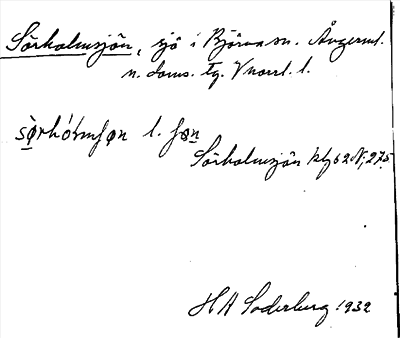 Sörholmsjön, sjö i Björna sn. Ångerml.
n. doms. tg. Vnorrl. l.
sø̀rhómʃøn l. ʃøn
Sörholmsjön kbl 62 N; 275
H A Söderberg 1932